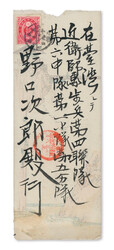 在臺湾
近衛師團歩兵第四聯隊
第六中隊第一小隊第五分隊
野口次郎殿行